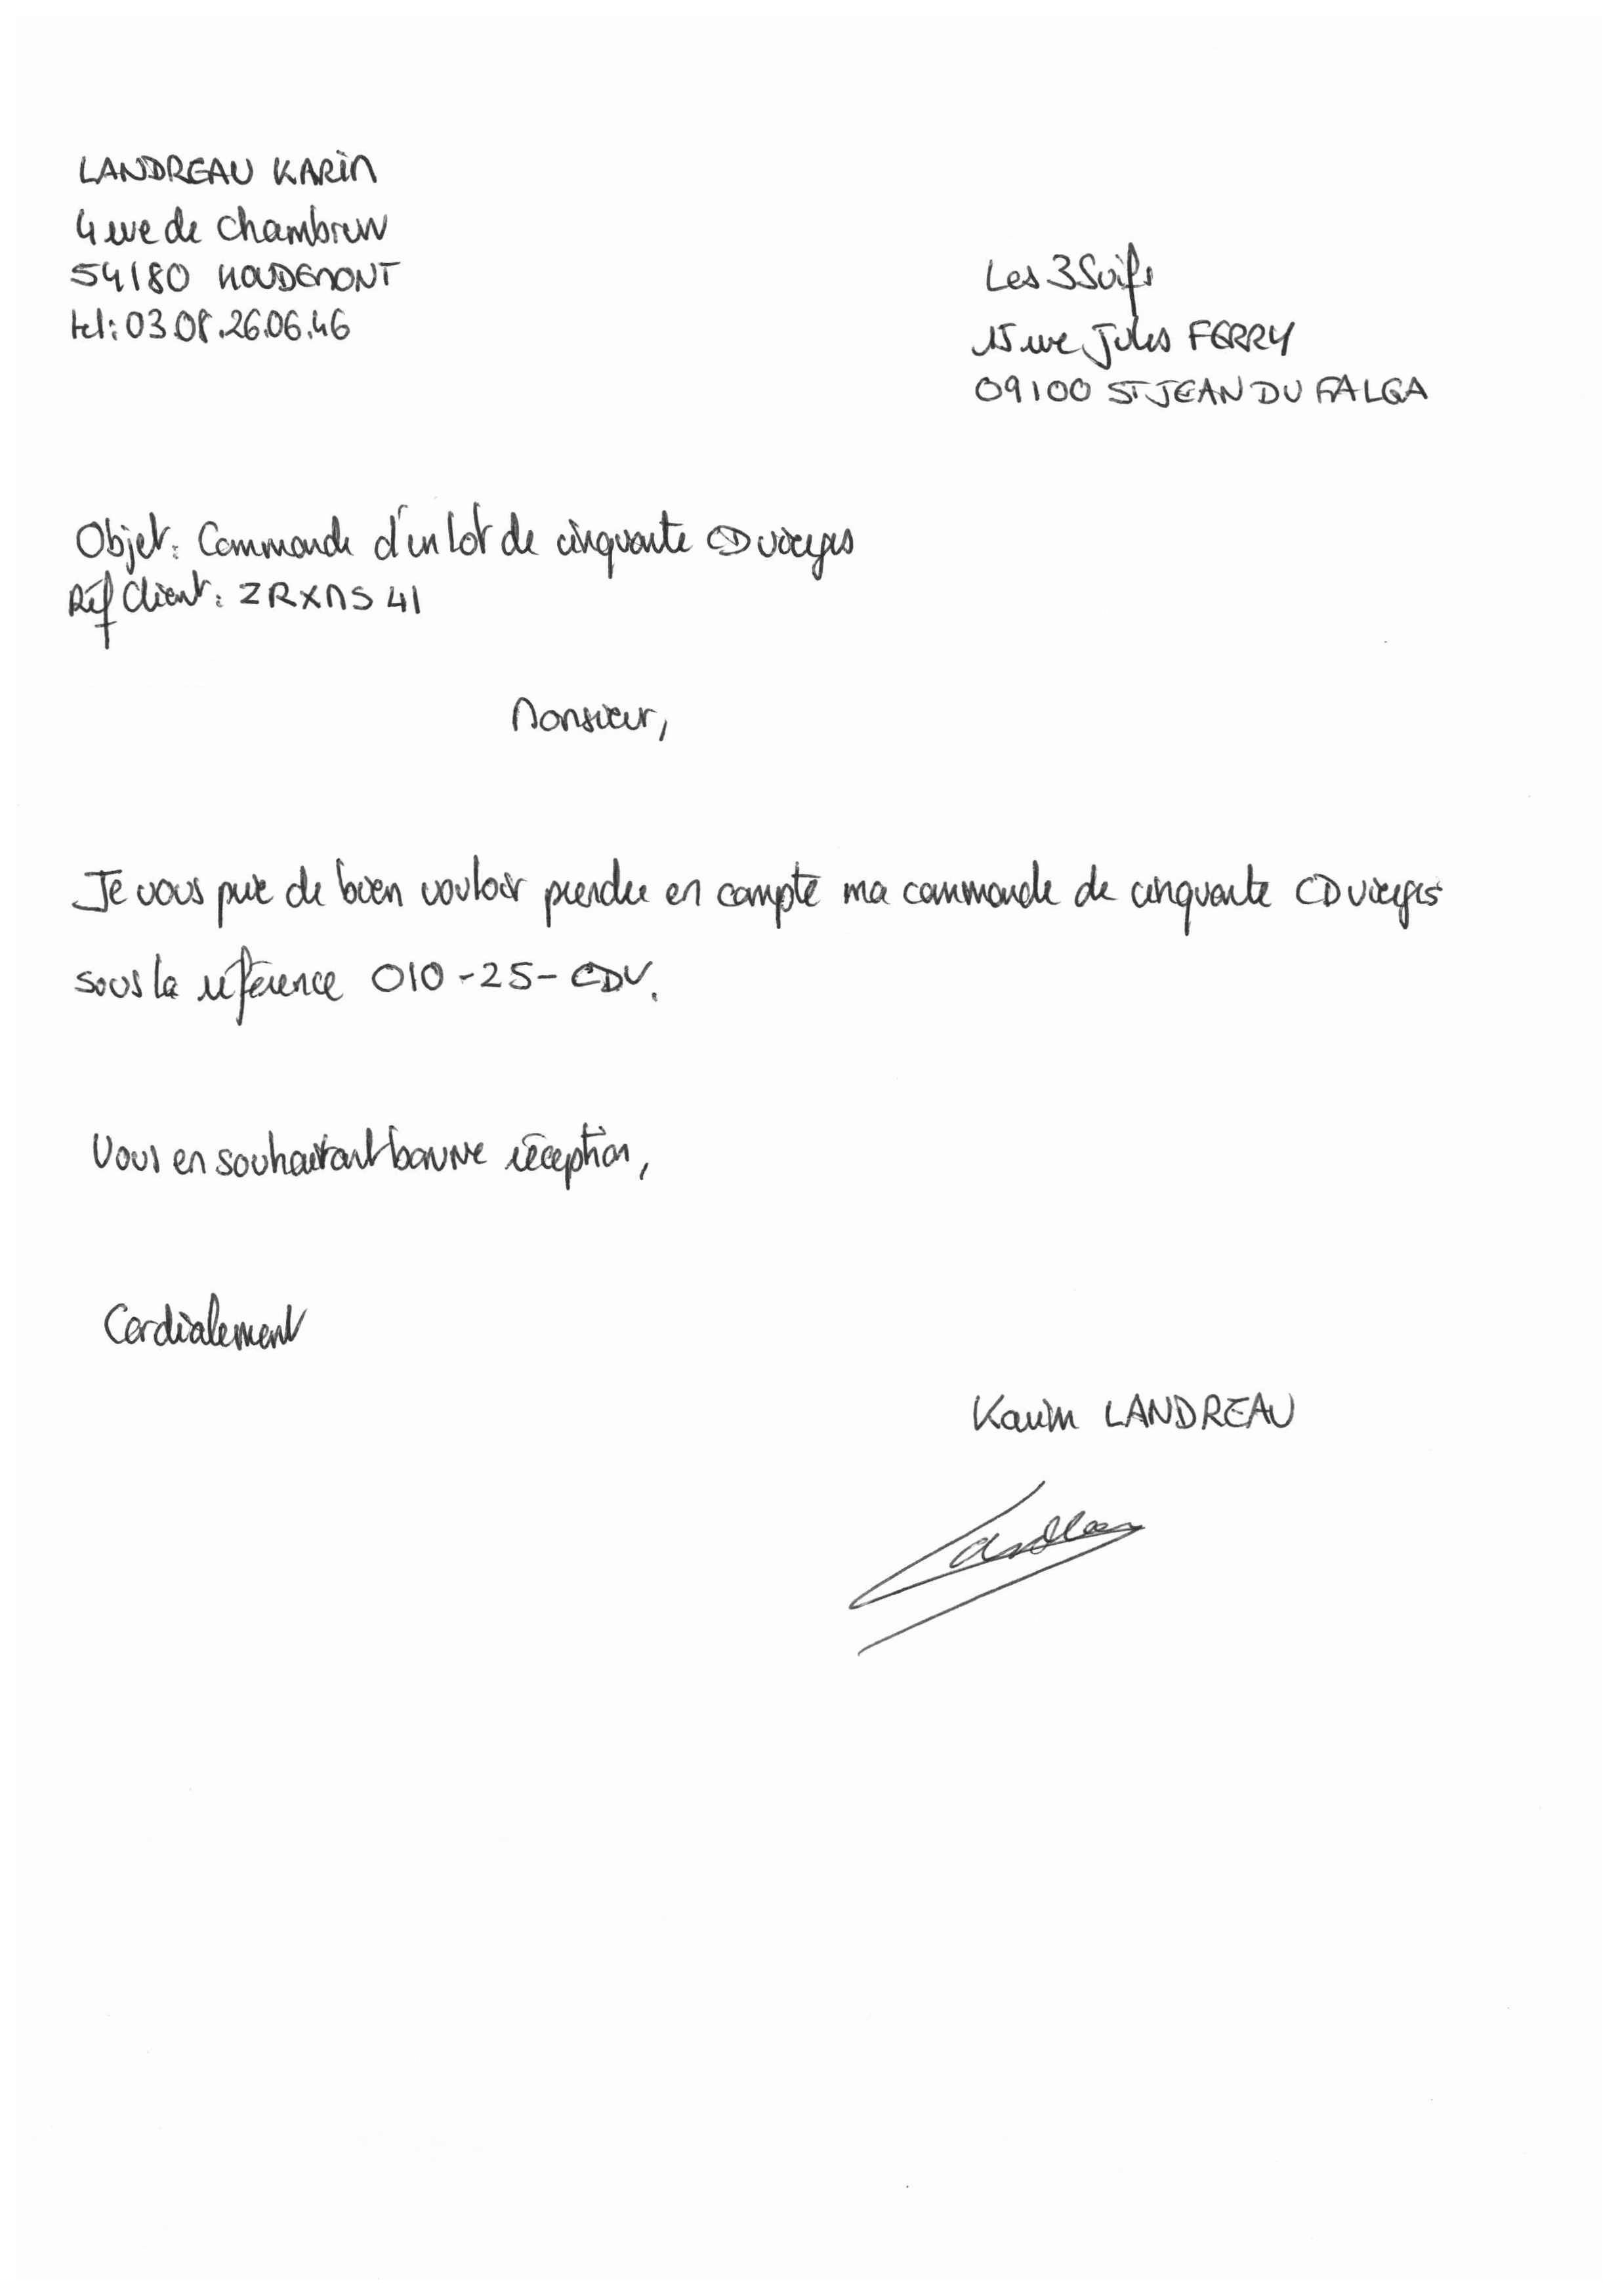 LANDREAU KARIM
4 rue de Chambrun
54180 HOUDEMONT
tel: 03.08.26.06.46
Les 3 Suifs
15 rue Jules FERRY
09100 ST JEAN DU FALGA
Objet: Commande d'un lot de cinquante CD vierges
Réf Client: ZRXMS 41
Monsieur,
Je vous prie de bien vouloir prendre en compte ma commande de cinquante CD vierges
sous la référence 010-25-CDV.
Vous en souhaitant bonne réception,
Cordialement
Karim LANDREAU